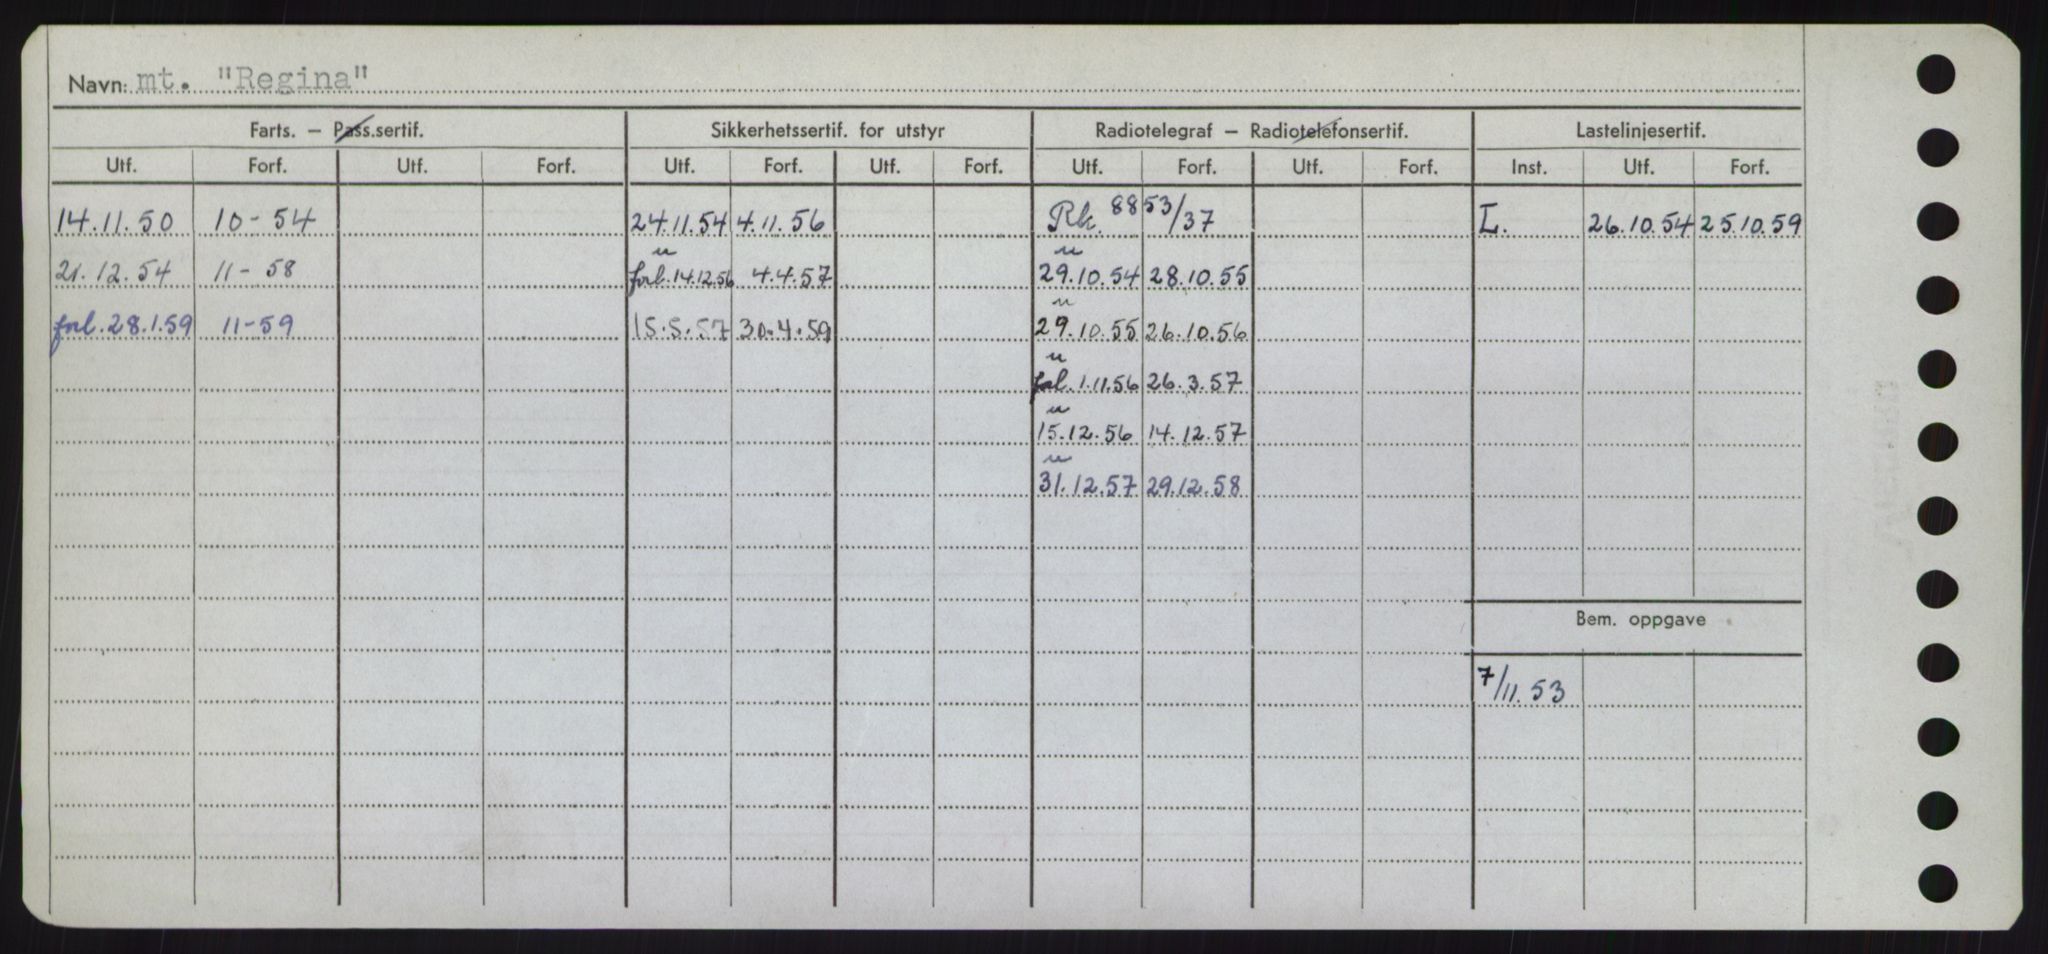 Navn: mt. "Regina"
Farts. – Pass.sertif. Sikkerhetssertif. for utstyr Radiotelegraf – Radiotelefonsertif. Lastelinjesertif.
Utf. Forf. Utf. Forf. Utf. Forf. Utf. Forf. Utf. Forf. Utf. Forf. Inst. Utf. Forf.
14.11.50 10-54 24.11.54 4.11.56 Rk. 8853/37 L. 26.10.54 25.10.59
21.12.54 11-58 forl. 14.12.56 4.4.57 29.10.54 28.10.55
forl. 28.1.59 11-59 15.5.57 30.4.59 29.10.55 26.10.56
forl. 1.11.56 26.3.57
15.12.56 14.12.57
31.12.57 29.12.58
Bem. oppgave
7/11.53